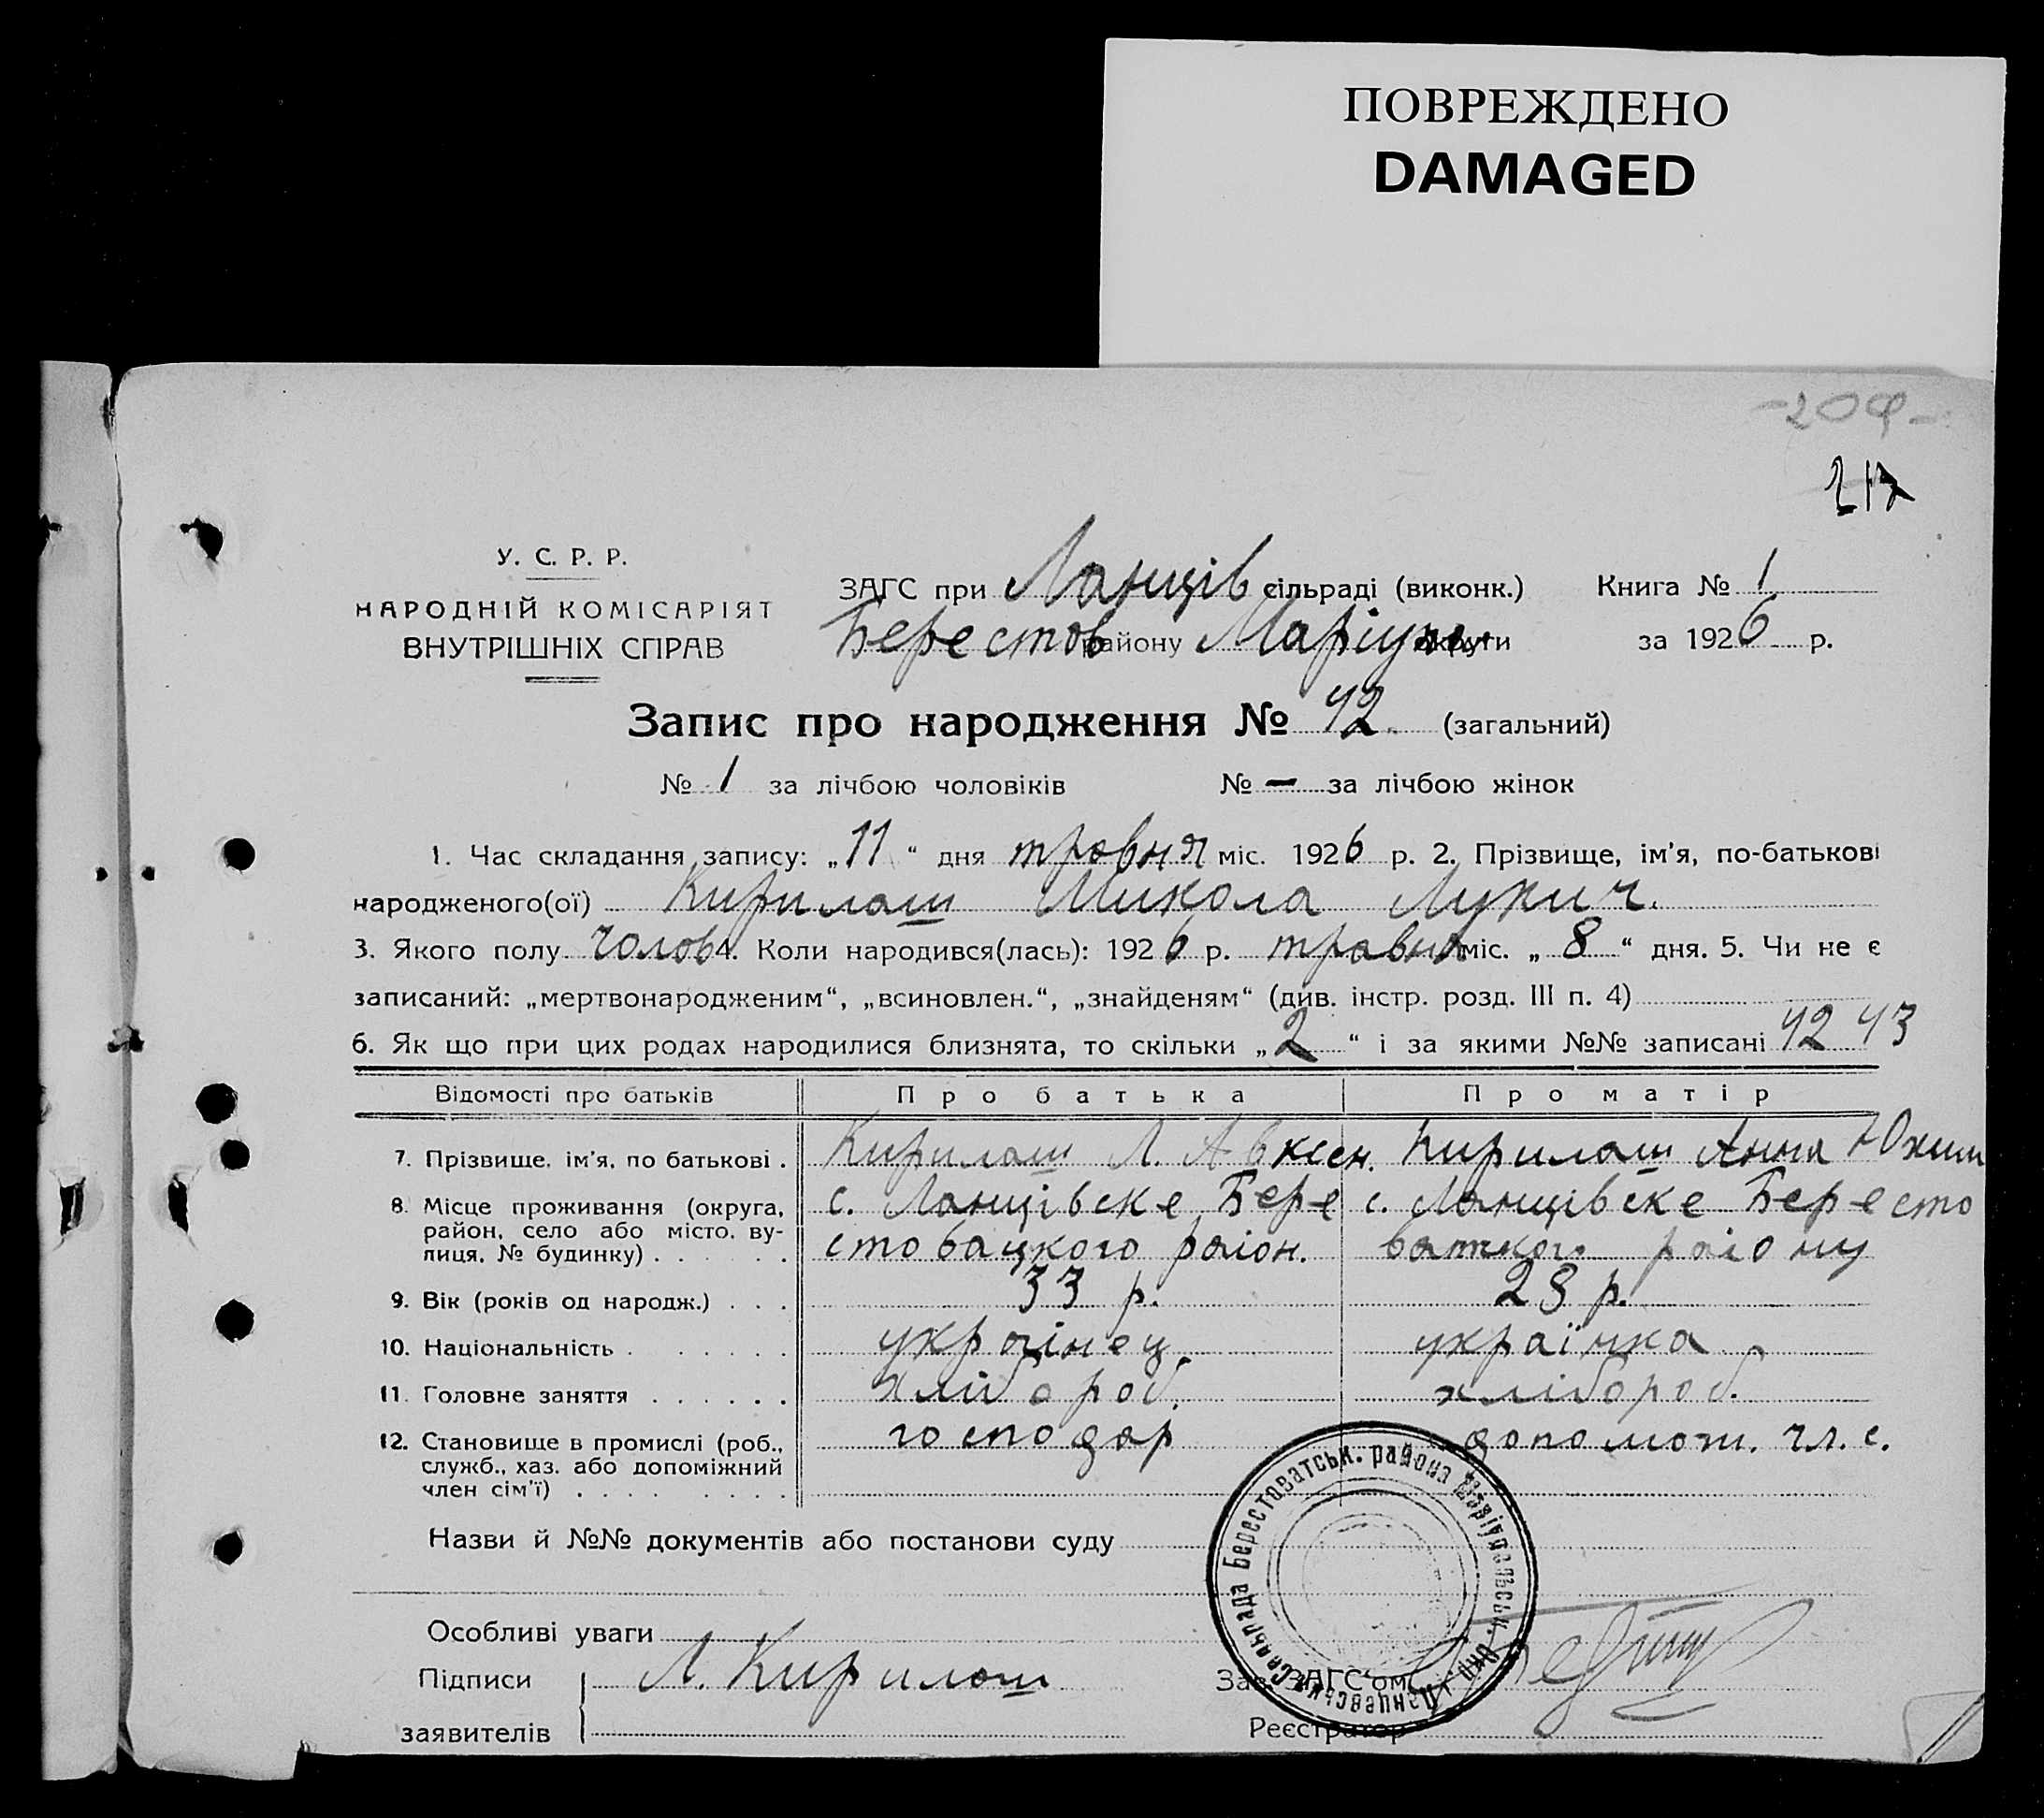 ПОВРЕЖДЕНО
DAMAGED
-209-
217
У. С. Р. Р.
НАРОДНІЙ КОМІСАРІЯТ
ВНУТРІШНІХ СПРАВ
ЗАГС при Ланців сільраді (виконк.) Книга № 1
Берестов району Маріуп. округи за 1926 р.
Запис про народження № 42 (загальний)
№ 1 за лічбою чоловіків № — за лічбою жінок
1. Час складання запису: „11“ дня травня міс. 1926 р. 2. Прізвище, ім'я, по-батькові
народженого(ої) Кирилаш Микола Лукич.
3. Якого полу чолов 4. Коли народився(лась): 1926 р. травня міс. „8“ дня. 5. Чи не є
записаний: „мертвонародженим“, „всиновлен.“, „знайденям“ (див. інстр. розд. III п. 4)
6. Як що при цих родах народилися близнята, то скільки „2“ і за якими №№ записані 42 43
Відомості про батьків Про батька Про матір
7. Прізвище, ім'я, по батькові . Кирилаш Л. Авксен. Кирилаш Анна Юхим
8. Місце проживання (округа, район, село або місто, ву-лиця, № будинку) . . . . с. Ланцівске Бере стовацкого район. с. Ланцівске Бересто ватког. району
9. Вік (років од народж.) . . . 33 р. 28 р.
10. Національність . . . . . . українец українка
11. Головне заняття . . . . . . хлібороб. хлібороб.
12. Становище в промислі (роб., служб., хаз. або допоміжний член сім'ї) . . . . . . . . господар допомож. чл. с.
Назви й №№ документів або постанови суду
Особливі уваги
Підписи Л. Кирилаш Зав. ЗАГС'ом
заявителів Реєстратор
Ланцевська Сельрада Берестоватськ. района Маріупільськ. Окр.